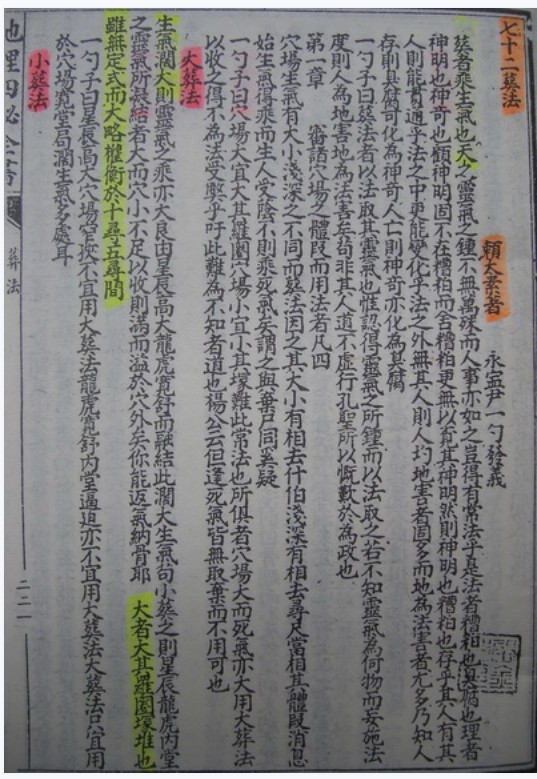 七十二葬法
賴太素著 永寍尹一勺發義
葬者乘生氣也天之靈氣之鍾不無萬殊而人事亦如之豈得有常法乎是法者糟粕也臭腐也理者
神明也神奇也顧神明固不在糟粕而舍糟粕更無以覓其神明然則神明也糟粕也存乎其人有其
人則能貫通乎法之中更能變化乎法之外無其人則人圴地害者固多而地為法害者尤多乃知人
存則臭腐可化為神奇人亡則神奇亦化為臭腐
一勺子曰葬法者以法取其靈氣也惟認得靈氣之所鍾而以法取之若不知靈氣為何物而妄施法
度則人為地害地為法害矣苟非其人道不虛行孔聖所以慨歎於為政也
第一章 審諸穴場之體段而用法者凡四
穴場生氣有大小淺深之不同而葬法因之其大小有相去什伯淺深有相去尋尺當相其體段消息
始生氣得乘而生人受蔭不則乘死氣矣謂之與棄尸同奚疑
一勺子曰穴場大宜大其羅圍穴場小宜小其塚難此常法也所俱者穴場大而死氣亦大用大葬法
以收之得不為法受斃乎吁此難為不知者道也楊公云但逢死氣皆無取棄而不用可也
大葬法
生氣濶大則靈氣之乘亦大良由星辰高大龍虎寬舒而融結此濶大生氣句小葬之則星辰龍虎內堂
之靈氣所凝結者大而穴小不足以收則滿而溢於穴外矣你能返氣納骨耶 大者大其羅圍塚堆也
雖無定式而大略權衡於十尋五尋間
一勺子曰星辰高大穴場窄狹不宜用大葬法龍虎寬舒內堂逼迫亦不宜用大葬法大葬法只宜用
於穴場寬堂局濶生氣多處耳
小葬法
地理四秘全書
葬法
二二一